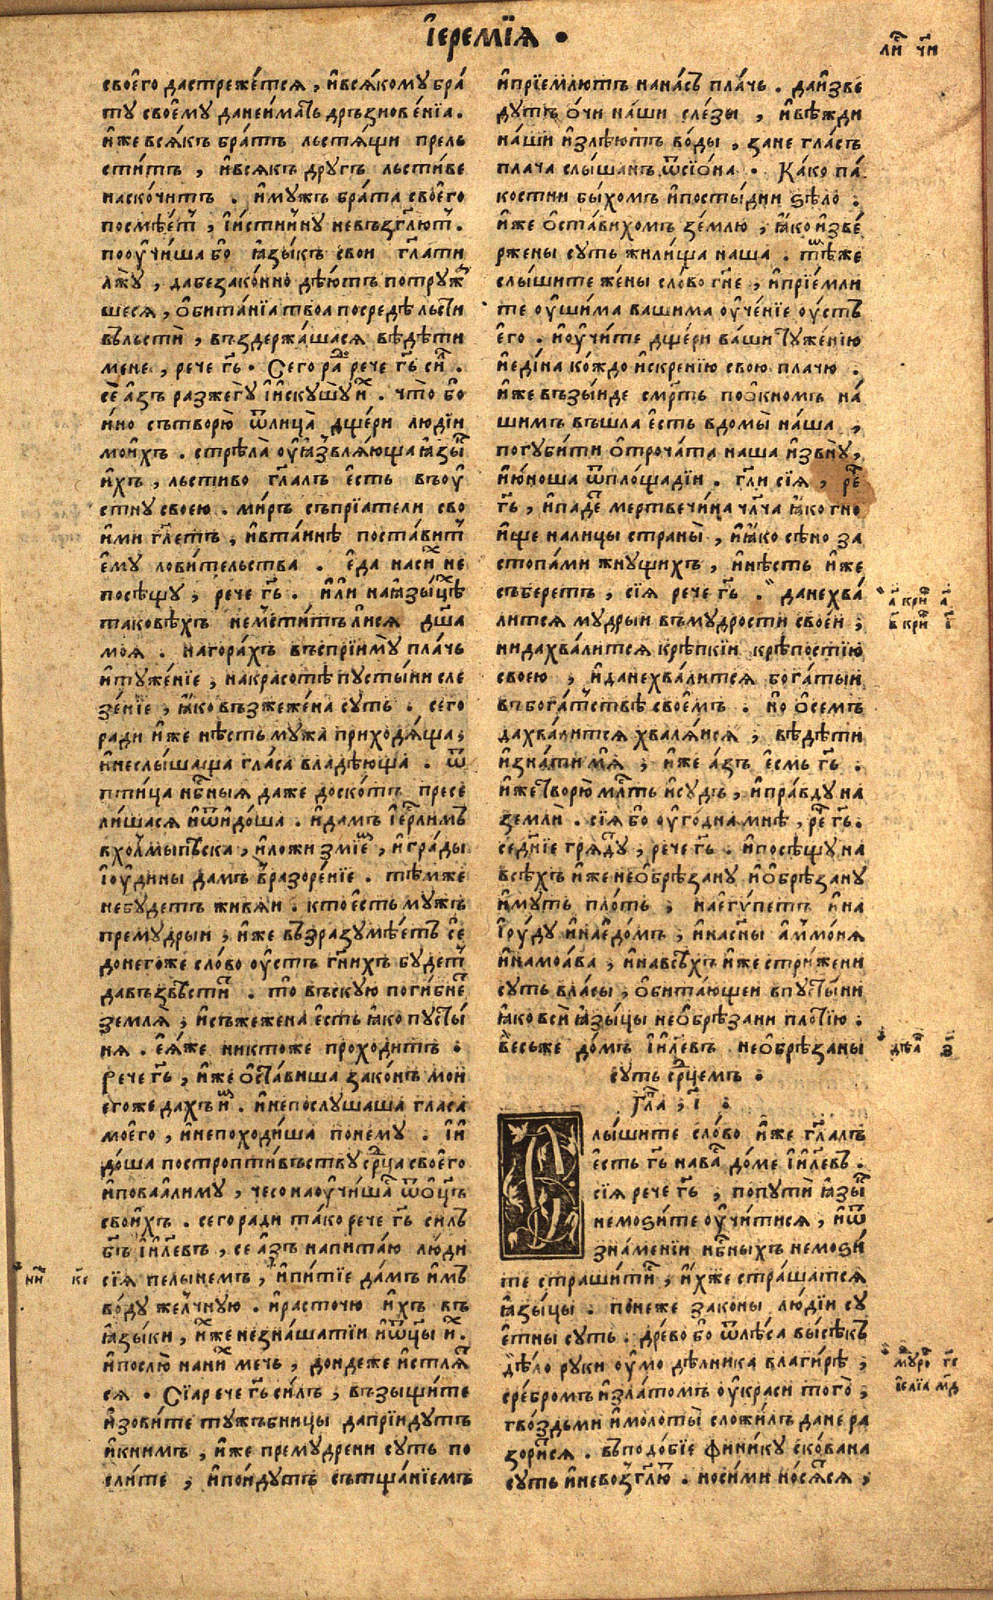 і҆еремїѧ ·
своѐго дастрежѐтсѧ , ѝвсѧ́кому бра́
ту своѐму данеи́мать дръзнове́нїа .
и҆же всѧ́къ бра́тъ льстѧ́щи прель
стѝтъ , и҆всѧкъ дрꙋгъ льстѝве
наско́читъ . и҆мꙋжъ бра́та своѐго
поо҆учи́ша бо ꙗ҆зы́къ свои гл҃ати
лжꙋ̀ , дабезако́нно дѣ́ютъ
шесѧ , ѻ҆бита́нїа твоа посредѣ льсти
въльстѝ , въздержа́шасѧ вѣ́дѣти
мене , рече гь҃ . Сего ра́ рече гь҃
се а҆зъ разжегꙋ . что̀ бо
и҆но сътворю̀ ѿлица̀ дще́ри людїи
мои́хъ . стрѣла̀ ꙋ҆ꙗзвлѧ́юща ꙗ҆зы́
и҆хъ , льстиво гл҃алъ є҆сть въоу
стнꙋ своею . ми́ръ съпрїатели сво
и҆ми гл҃етъ , и҆вта́инѣ постави́т
є҆мꙋ ловительства . є҆да наси́х не
посѣщꙋ , рече гь҃ . и҆лѝ наꙗзы́цѣ
таковѣ́хъ неме́ститълисѧ дш҃а
моѧ . нагора́хъ въспрїи́мꙋ пла́чь
и҆тꙋже́нїе , накрасотѣ̀ пꙋсты́ни сле
зе́нїе , ꙗ҆ко възжеже́на сꙋть . сего
ради и҆же нѣ́сть мꙋжа̀ приходѧ́ща ;
и҆неслы́шаща гла́са владѣ́юща . ѿ
птица нб҃ныѧ даже доско́тъ пресе
ли́шасѧ и҆ѿидо́ша . и҆да́мъ і҆ер҃лимъ
і҆оу́дины дамъ вразоре́нїе . тѣ́мже
небꙋ́детъ живѧ́и . кто̀ є҆сть мꙋжъ
премꙋ́дрыи ; и҆же въразꙋмѣ́етъ се
донегоже сло́во ꙋ҆стъ гн҃ихъ бꙋдет
давъзвѣсти́т . что̀ въскꙋю поги́бне
землѧ̀ ; и҆съжежена є҆сть ꙗ҆ко пꙋсты
нѧ . є҆ѧ́же никтоже проходитъ .
Рече гь҃ , и҆же ѻ҆ста́виша зако́нъ мои
егоже дахъ и҆м . и҆непослꙋшаша гласа
моего , и҆непоходи́ша понемꙋ . і҆и
до́ша построптивъствꙋ ср҃ца своѐго
и҆поваалимꙋ , чесо наꙋчи́ша ѿо҆ць
свои́хъ . сего ради та́ко рече гь҃ силъ
бг҃ъ і҆и҃левъ , се а҆зъ напита́ю лю́ди
сїѧ пелынемъ , и҆пи́тїе да́мъ и҆мъ
во́дꙋ же́лчнꙋю . и҆расточю и҆хъ въ
ꙗ҆зы́ки , и҆хже незна́шатїи и҆ѿцы и҆х .
и҆послю̀ нани́х мечь , дондеже и҆стлѧ́т
сѧ . Сїа рече гь҃ силъ , възыщѝте
и҆зовѝте тꙋжъбницы дапрїидꙋтъ
и҆книмъ , и҆же премꙋдрени сꙋть по
слите , и҆поидꙋтъ сътща́нїемъ
и҆прїемлютъ нана́съ пла́чь . даи҆зве
дꙋтъ ѻ҆чи на́ши сле́зы , и҆вѣ́жди
на́ши и҆злѣ́ютъ во́ды , зане гла́съ
плача слы́шанъ ѿсїѡ́на . Ка́ко па
костни бы́хомъ и҆посты́дни ѕѣло .
и҆же ѻ҆ста́вихомъ зе́млю , ꙗ҆ко и҆зве́
ржены сꙋть жили́ща наша . тѣ́мже
слы́шите жены сло́во гн҃е , и҆прїе́мли
те ꙋ҆ши́ма вашима ꙋ҆че́нїе ꙋ҆стъ
є҆го . и҆ꙋчи́те дще́ри ваши тꙋже́нїю
и҆еди́на кождо и҆скренюю свою плачю .
и҆же възы́иде см҃рть поо́кномъ на́
шимъ въшла є҆сть вдомы̀ на́ша ,
погꙋби́ти ѻ҆троча́та наша и҆звнꙋ̀ ,
и҆ю́ноша ѿпло́щадїи . гл҃и сїѧ , ре́
гь҃ , и҆паде мертвечи́на чл҃ча ꙗ҆ко гно
и҆ще налицы страны̀ , и҆ꙗ́ко сѣ́но за
стопами жнꙋщихъ , и҆нѣ́сть и҆же
съберетъ , сїѧ рече гь҃ . данехва́
литсѧ мꙋдрыи въмꙋдрости своеи ;
нидахва́литсѧ крѣ́пкїи крѣ́постїю
своею , и҆данехва́литсѧ богатыи
въбога́тствѣ своѐмъ . но ѻ҆семъ
дахвалитсѧ хвалѧ́исѧ , вѣ́дѣти
и҆зна́ти мѧ̀ ; и҆же а҆зъ є҆смь гь҃ .
и҆же творю̀ мл҃ть и҆сꙋдъ , и҆пра́вдꙋ на
землѝ . сїѧ бо ꙋ҆годна мнѣ , ре́ гь҃ .
се дн҃їе грѧ́дꙋ , рече гь҃ . и҆посѣщꙋ на
всѣ́хъ и҆же необрѣ́занꙋ и҆обрѣ́занꙋ
и҆мꙋть пло́ть ; наегѵ́петъ и҆на
і҆ꙋ́дꙋ и҆наедо́мъ ; и҆насн҃ы а҆ммо́нѧ
и҆намоа́ва ; и҆навсѣ́хъ и҆же стри́жени
сꙋть власы̀ , ѻ҆бита́ющеи впꙋсты́ни
ꙗ҆ко всѝ ꙗ҆зы́цы необрѣ́зани пло́тїю .
весьже до́мъ і҆и҃левъ необрѣ́заны
сꙋть ср҃цемъ .
Гла , і҃ .
Слы́шите сло́во и҆же гл҃алъ
є҆сть гь҃ нава́ до́ме і҆и҃левъ .
сїѧ рече гь҃ , попꙋтѝ ꙗ҆зы́к
немозѝте ꙋ҆чи́тисѧ , и҆ѿ
зна́менїи нб҃ныхъ немозѝ
те страши́тисѧ , и҆хже стра́шатсѧ
ꙗ҆зы́цы . поне́же законы лю́дїи сꙋ
є҆тны сꙋть . дре́во бо ѿлѣ́са вы́сѣкъ
дѣ́ло рꙋки ꙋ҆мо дѣ́лника влагирѣ ;
сребромъ и҆зла́томъ ꙋ҆краси того ;
гво́здьми и҆молоты̀ сложи́лъ дане ра
зори́тсѧ . въподо́бїе фини́кꙋ скована
сꙋть и҆невозгл҃ю́т . носими но́сѧтсѧ ,